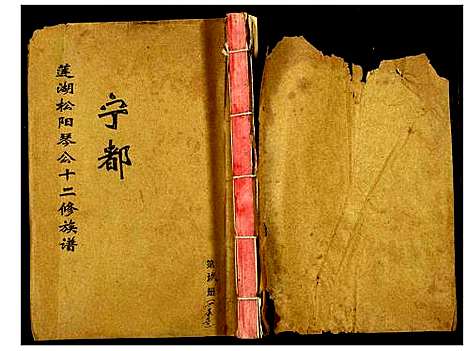 莲湖松阳琴公十二修族谱
宁都
第玖册